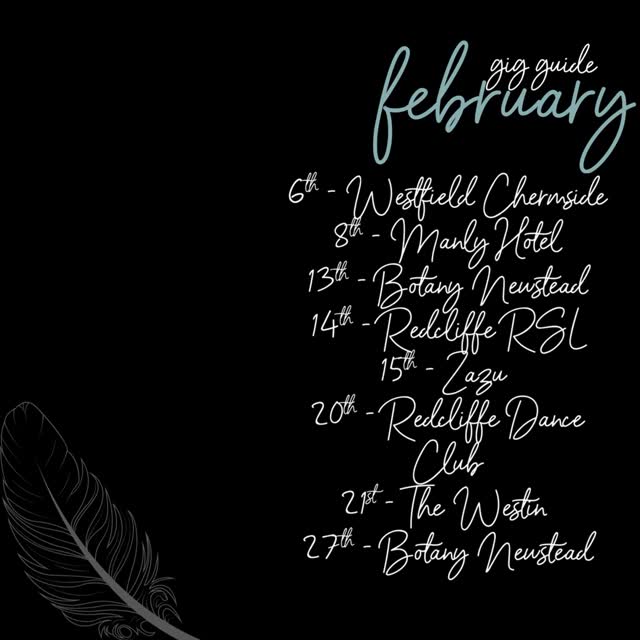 gig guide
february
6th - Westfield Chermside
8th - Manly Hotel
13th - Botany Newstead
14th - Redcliffe RSL
15th - Zazu
20th - Redcliffe Dance
Club
21st - The Westin
27th - Botany Newstead